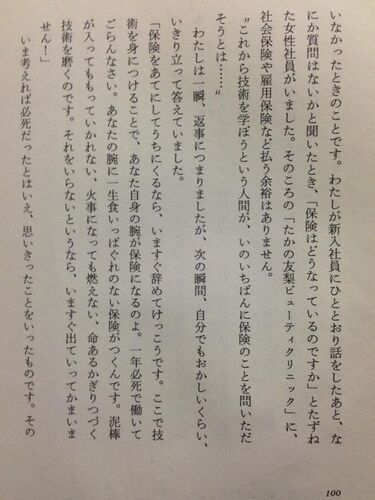 いなかったときのことです。わたしが新入社員にひととおり話をしたあと、な
にか質問はないかと聞いたとき、「保険はどうなっているのですか」とたずね
た女性社員がいました。そのころの「たかの友梨ビューティクリニック」に、
社会保険や雇用保険など払う余裕はありません。
〝これから技術を学ぼうという人間が、いのいちばんに保険のことを問いただ
そうとは……〟
わたしは一瞬、返事につまりましたが、次の瞬間、自分でもおかしいくらい、
いきり立って答えていました。
「保険をあてにしてうちにくるなら、いますぐ辞めてけっこうです。ここで技
術を身につけることで、あなた自身の腕が保険になるのよ。一年必死で働いて
ごらんなさい。あなたの腕に一生食いっぱぐれのない保険がつくんです。泥棒
が入ってももっていかれない、火事になっても燃えない、命あるかぎりつづく
技術を磨くのです。それをいらないというなら、いますぐ出ていってかまいま
せん！」
いま考えれば必死だったとはいえ、思いきったことをいったものです。その
100